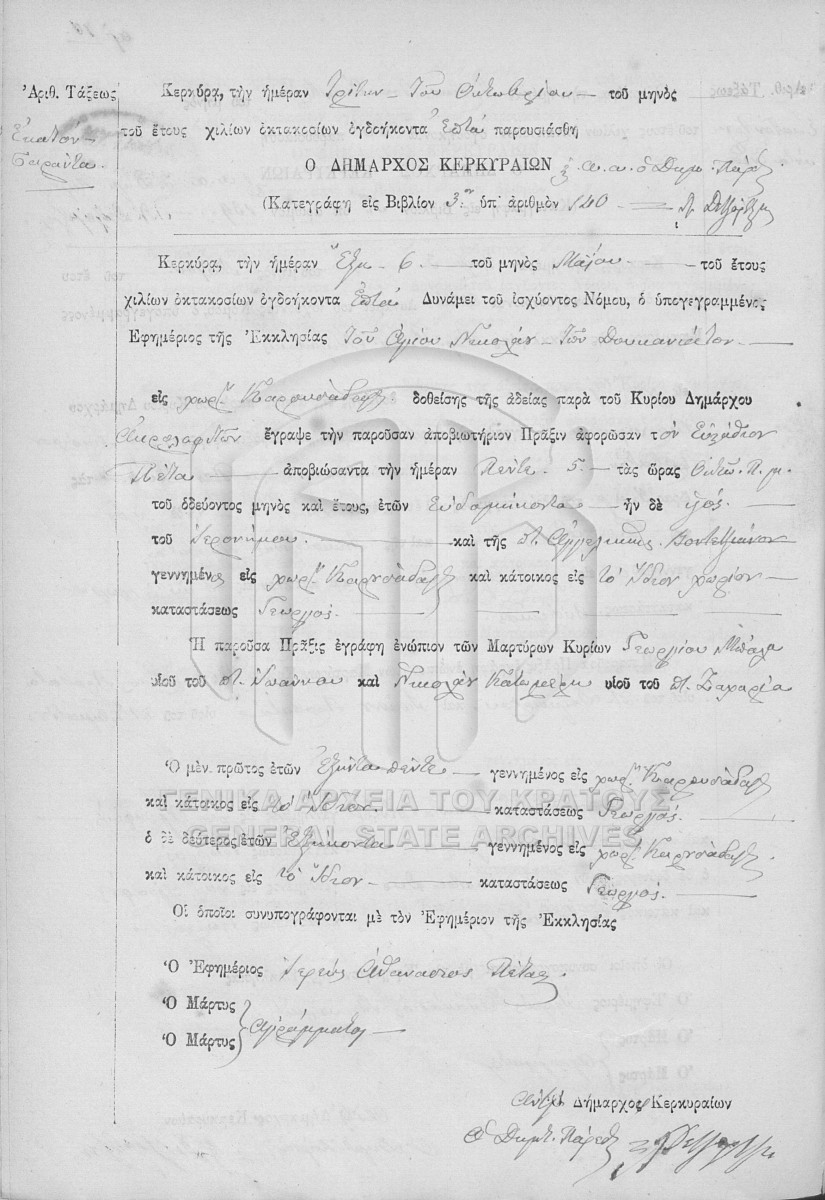 Ἀριθ. Τάξεως
Ἑκατὸν
Σαράντα
Κερκύρᾳ, τὴν ἡμέραν Τρίτην τοῦ Ὀκτωβρίου τοῦ μηνὸς
τοῦ ἔτους χιλίων ὀκτακοσίων ὀγδοήκοντα ἑπτά παρουσιάσθη
Ο ΔΗΜΑΡΧΟΣ ΚΕΡΚΥΡΑΙΩΝ
(Κατεγράφη εἰς Βιβλίον 3ον ὑπ' ἀριθμὸν 140
Κερκύρᾳ, τὴν ἡμέραν Ἕξη 6 τοῦ μηνὸς Μαΐου τοῦ ἔτους
χιλίων ὀκτακοσίων ὀγδοήκοντα ἑπτά Δυνάμει τοῦ ἰσχύοντος Νόμου, ὁ ὑπογεγραμμένος
Ἐφημέριος τῆς Ἐκκλησίας τοῦ Ἁγίου Νικολάου τῶν
εἰς χωρ. Καρουσάδες δοθείσης τῆς ἀδείας παρὰ τοῦ Κυρίου Δημάρχου
ἔγραψε τὴν παροῦσαν ἀποβιωτήριον Πρᾶξιν ἀφορῶσαν τὸν
Πέτα ἀποβιώσαντα τὴν ἡμέραν Πέντε 5 τὰς ὥρας Ὀκτώ π. μ.
τοῦ ὁδεύοντος μηνὸς καὶ ἔτους, ἐτῶν Εὐδομήκοντα ἦν δὲ υἱός
τοῦ Ἱερονήμου καὶ τῆς π. Ἀγγελικῆς
γεννημένος εἰς χωρ. Καρουσάδες καὶ κάτοικος εἰς τὸ ἴδιον χωρίον
καταστάσεως Γεωργός.
Ἡ παροῦσα Πρᾶξις ἐγράφη ἐνώπιον τῶν Μαρτύρων Κυρίων Γεωργίου
υἱοῦ τοῦ π. Ἰωάννου καὶ Νικολάου υἱοῦ τοῦ π. Ζαχαρία
Ὁ μὲν πρῶτος ἐτῶν Ἑξήντα πέντε γεννημένος εἰς χωρ. Καρουσάδες
καὶ κάτοικος εἰς τὸ ἴδιον. καταστάσεως Γεωργός.
ὁ δὲ δεύτερος ἐτῶν Ἑξήκοντα γεννημένος εἰς χωρ. Καρουσάδες
καὶ κάτοικος εἰς τὸ ἴδιον καταστάσεως Γεωργός.
Οἱ ὁποῖοι συνυπογράφονται μὲ τὸν Ἐφημέριον τῆς Ἐκκλησίας
Ὁ Ἐφημέριος Ἱερεύς Ἀθανάσιος Πέτας
Ὁ Μάρτυς
Ὁ Μάρτυς Ἀγράμματοι
Δήμαρχος Κερκυραίων
ΓΕΝΙΚΑ ΑΡΧΕΙΑ ΤΟΥ ΚΡΑΤΟΥΣ
GENERAL STATE ARCHIVES